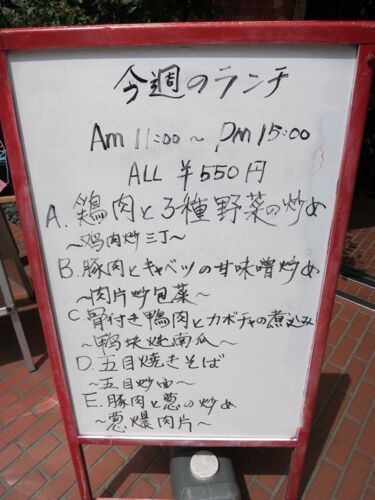 今週のランチ
Am 11:00 ~ Pm 15:00
ALL ¥550円
A. 鶏肉と3種野菜の炒め
~鸡肉炒三丁~
B. 豚肉とキャベツの甘味噌炒め
~肉片炒包菜~
C 骨付き鴨肉とカボチャの煮込み
~鸭块烧南瓜~
D. 五目焼きそば
~五目炒面~
E. 豚肉と葱の炒め
~葱爆肉片~